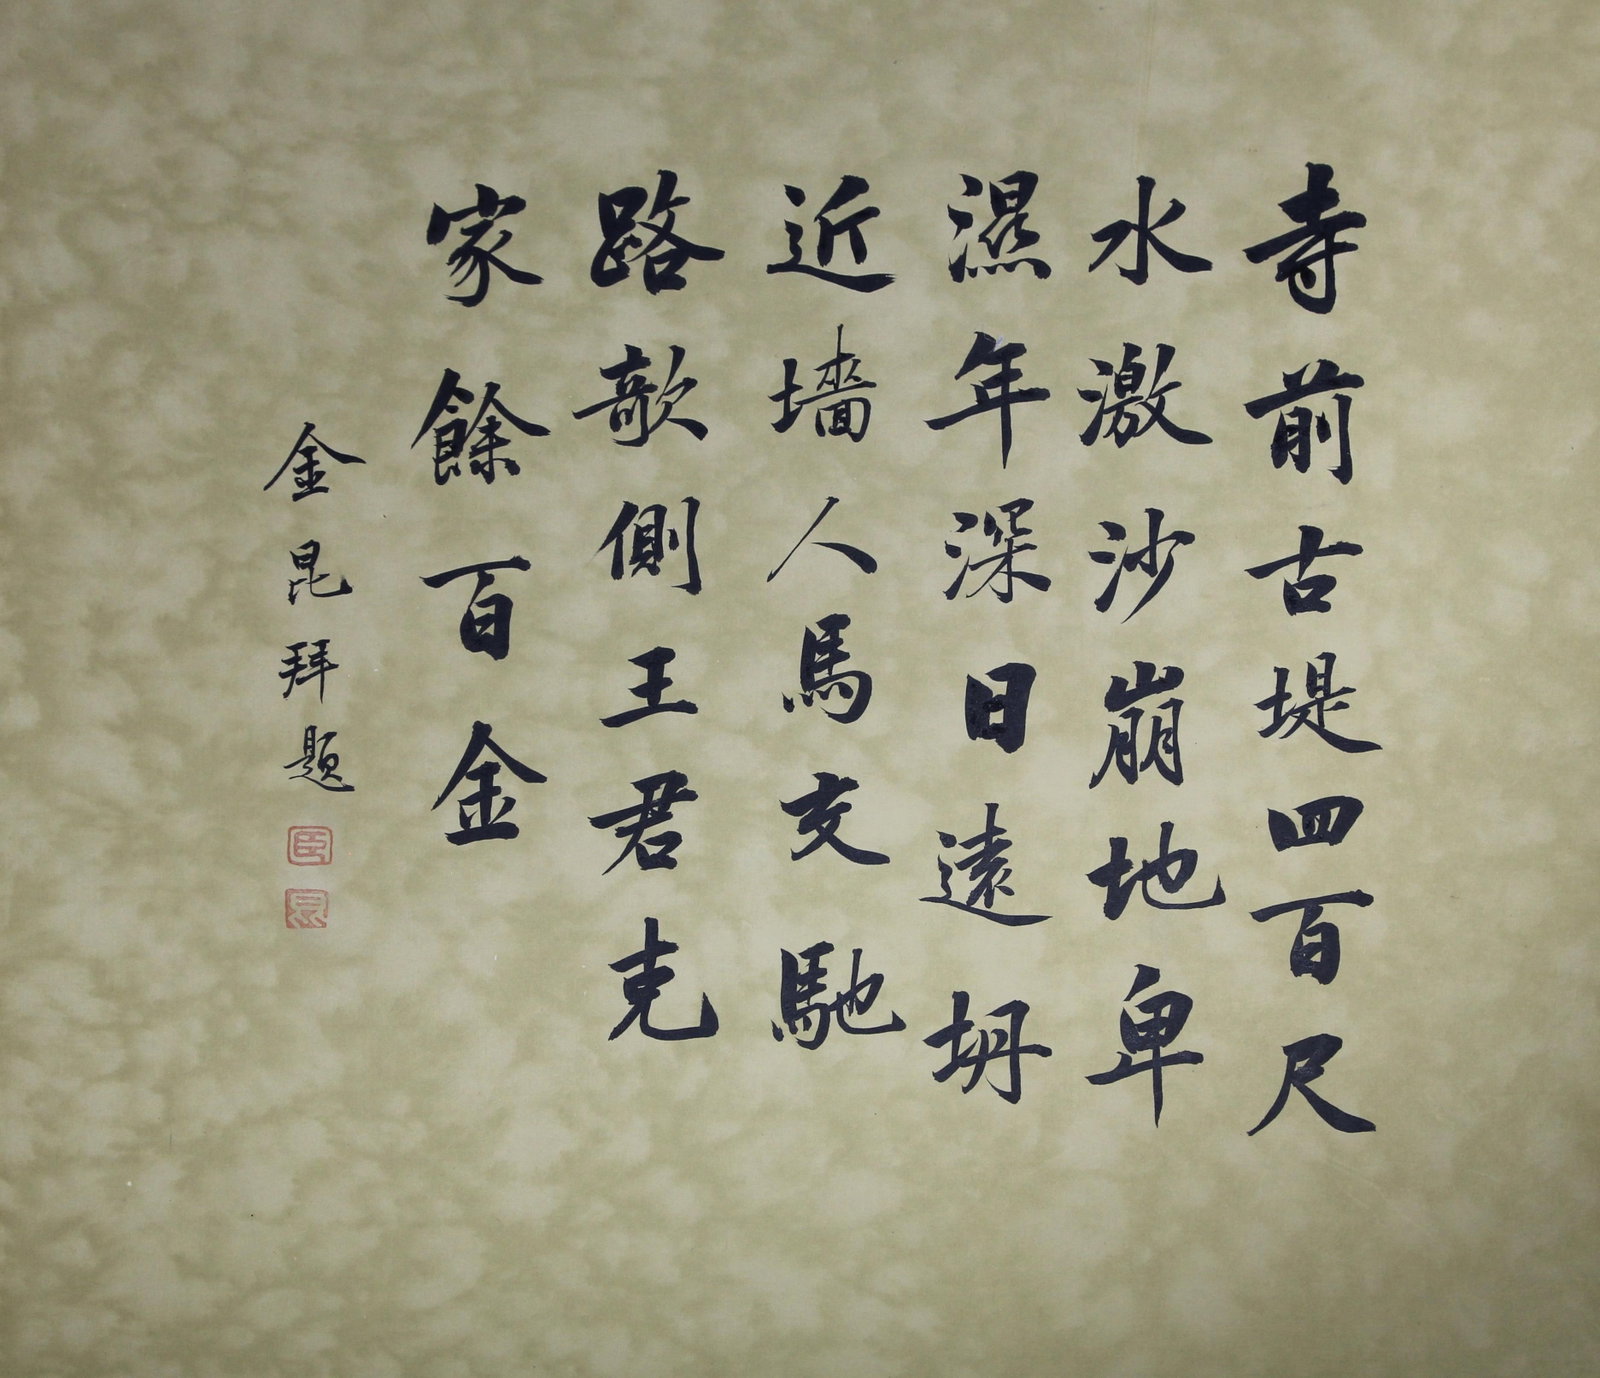 寺前古堤四百尺
水激沙崩地卑
濕年深日遠坍
近墻人馬交馳
路欹側王君克
家餘百金
金昆拜題
臣
昆